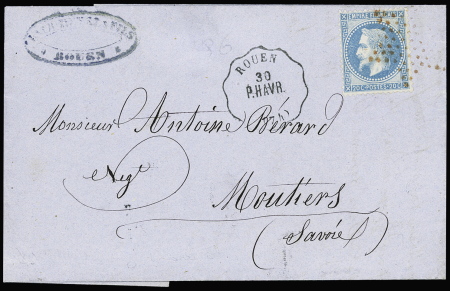 ROUEN
ROUEN
30
P.HAVR.
EMPIRE FRANC
20C POSTES 20C
Monsieur Antoine Bérard
Negt
Moutiers
(Savoie)